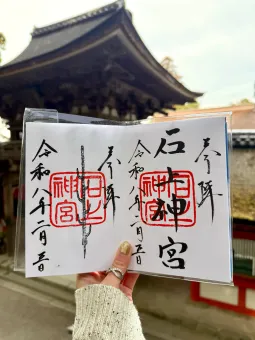 奉拝
石上神宮
石上
神宮
令和八年二月日
奉拝
石上
神宮
令和八年二月日